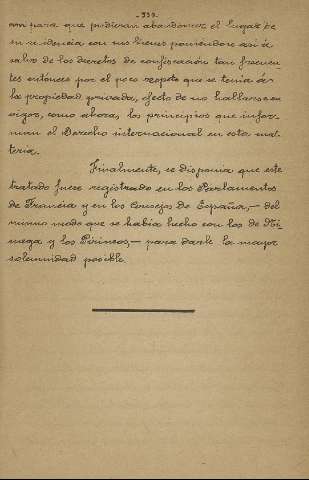 -339-
ran para que pudieran abandonar el lugar de
su residencia con sus bienes poniendose así á
salvo de los decretos de confiscación tan frecuen
tes entónces por el poco respeto que se tenía á
la propiedad privada, efecto de no hallarse en
vigor, como ahora, los principios que infor-
man el Derecho internacional en esta ma-
teria.
Finalmente, se disponia que este
tratado fuese registrado en los Parlamentos
de Francia y en los Consejos de España,— del
mismo modo que se había hecho con los de Ni-
mega y los Pirineos,— para darle la mayor
solemnidad posible